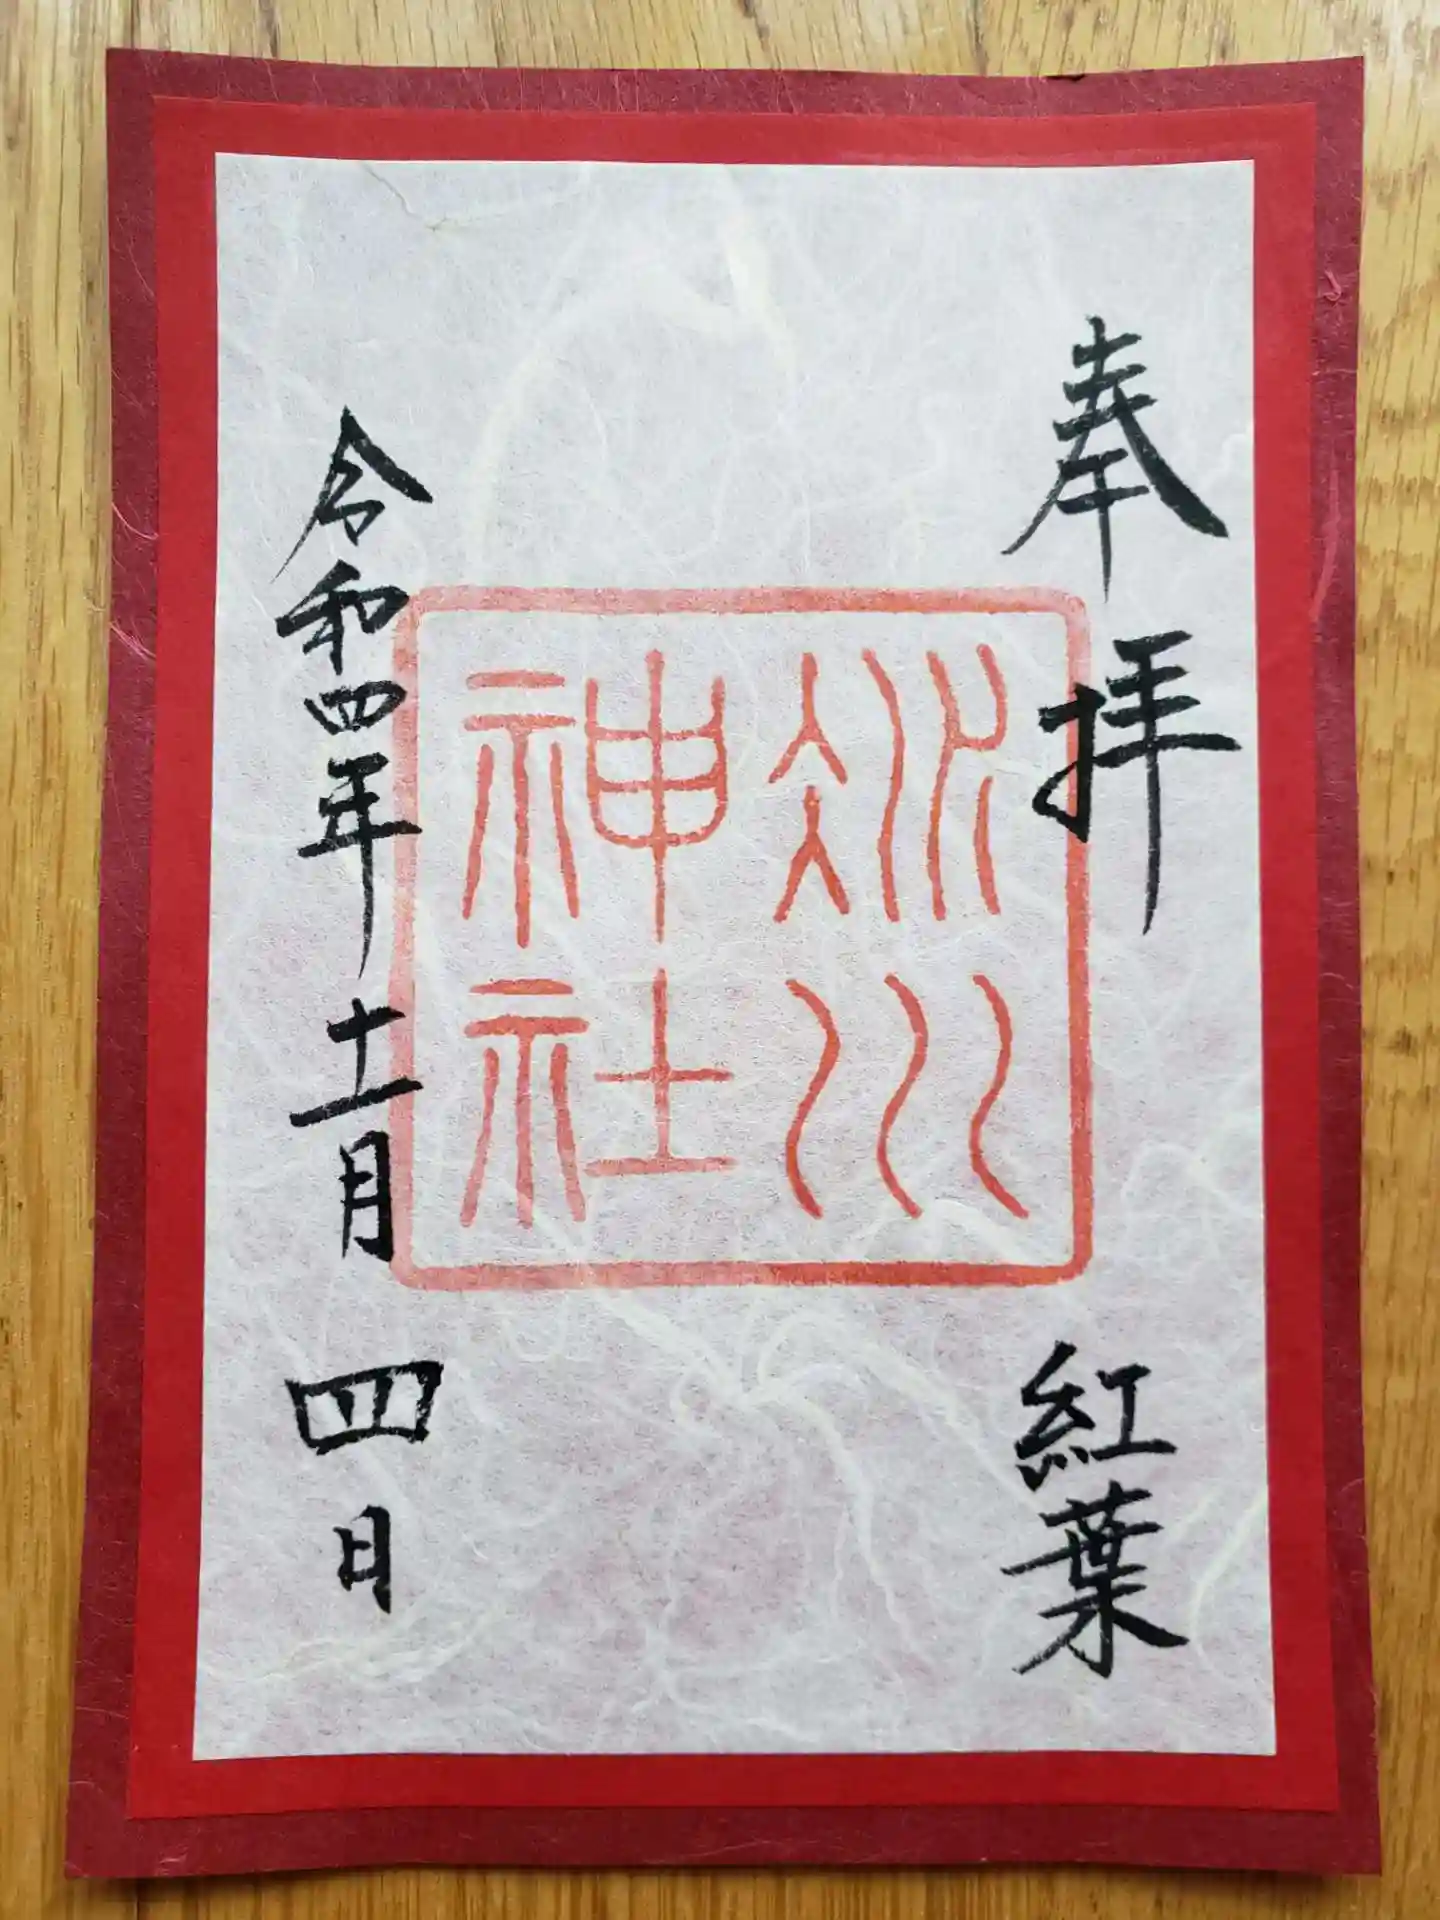 奉拝
紅葉
氷川
神社
令和四年十一月四日